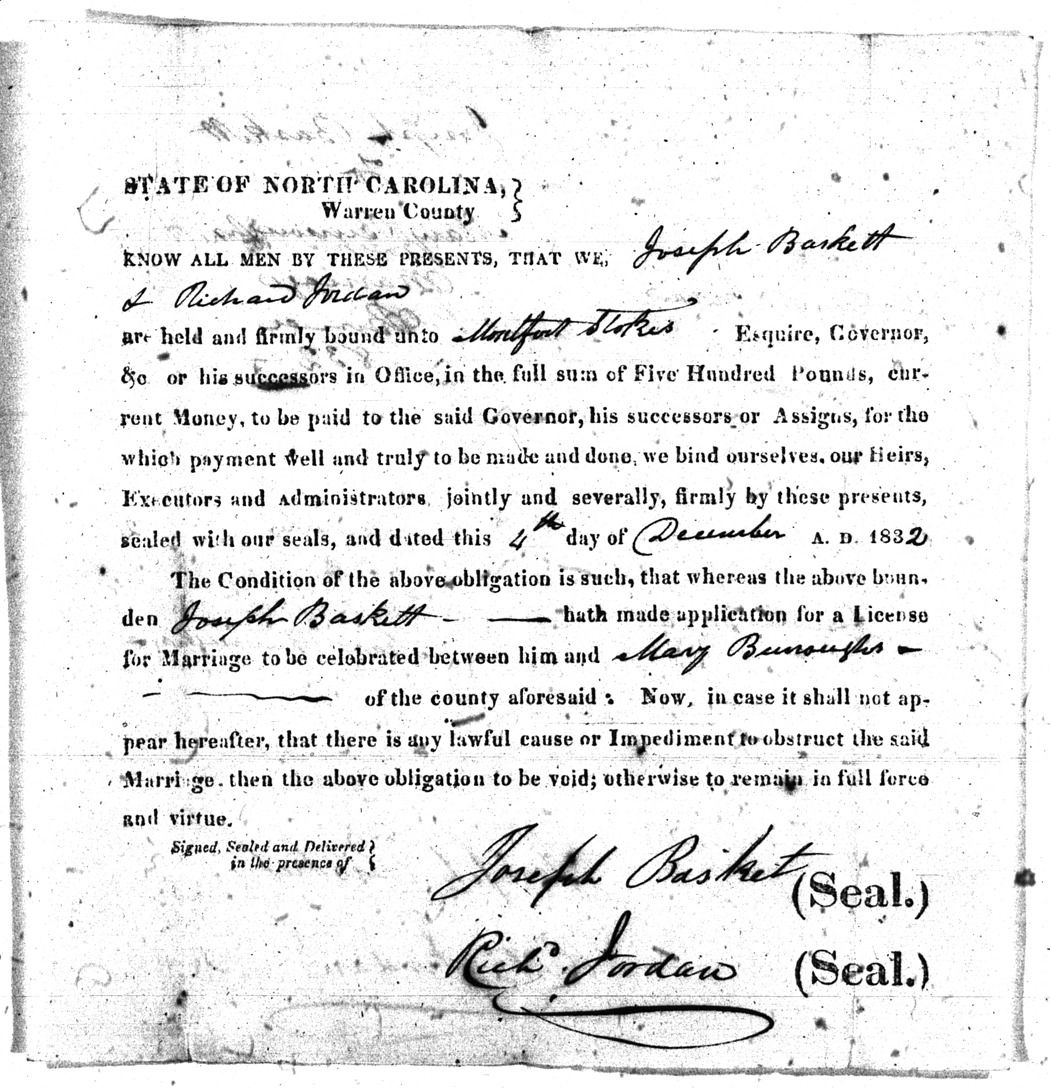 STATE OF NORTH CAROLINA,
Warren County
KNOW ALL MEN BY THESE PRESENTS, THAT WE, Joseph Baskett
& Richard Jordan
are held and firmly bound unto Montfort Stokes Esquire, Governor,
&c or his successors in Office, in the full sum of Five Hundred Pounds, cur-
rent Money, to be paid to the said Governor, his successors or Assigns, for the
which payment well and truly to be made and done, we bind ourselves, our Heirs,
Executors and Administrators, jointly and severally, firmly by these presents,
sealed with our seals, and dated this 4th day of December A. D. 1832
The Condition of the above obligation is such, that whereas the above boun-
den Joseph Baskett - — hath made application for a License
for Marriage to be celebrated between him and Mary Burroughs -
- — of the county aforesaid: Now, in case it shall not ap-
pear hereafter, that there is any lawful cause or Impediment to obstruct the said
Marriage, then the above obligation to be void; otherwise to remain in full force
and virtue.
Signed, Sealed and Delivered
in the presence of
Joseph Basket (Seal.)
Richd. Jordan (Seal.)